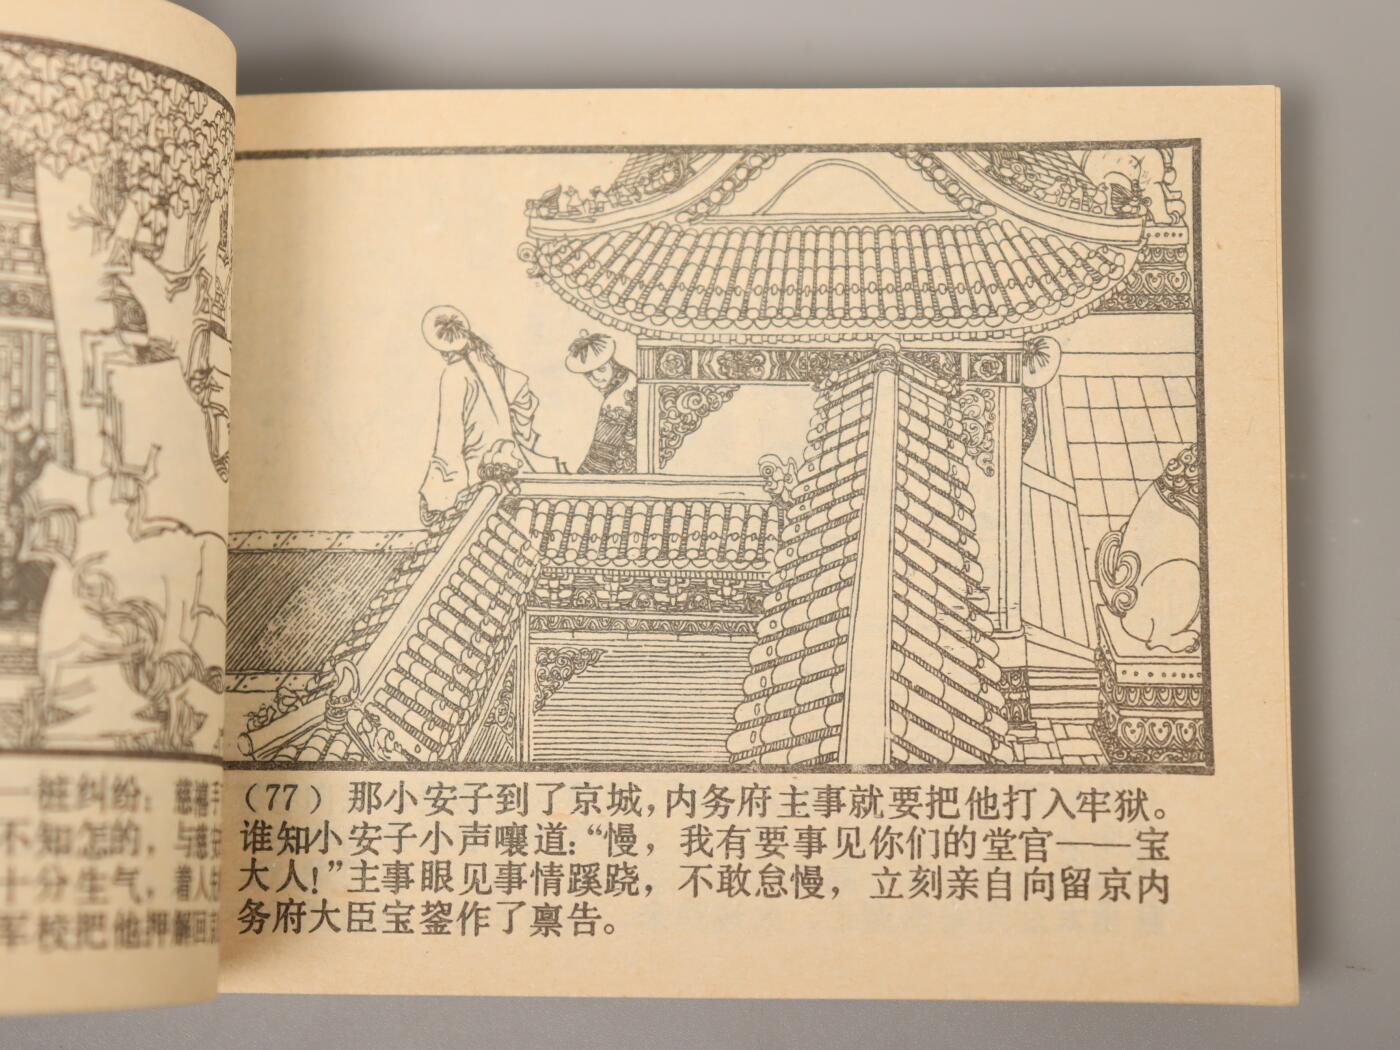 一桩纠纷：慈禧
不知怎的，与慈安
十分生气，着人
军校把他押解回
(77) 那小安子到了京城，内务府主事就要把他打入牢狱。
谁知小安子小声嚷道：“慢，我有要事见你们的堂官——宝
大人！”主事眼见事情蹊跷，不敢怠慢，立刻亲自向留京内
务府大臣宝鋆作了禀告。